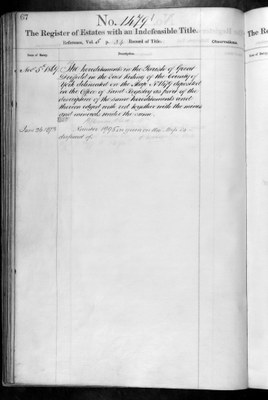 617
No. 1479
The Register of Estates with an Indefeasible Title.
Reference, Vol. p. Record of Title.
Observations.
Date of Entry.
Description.
Nov 5th 1869 The hereditaments in the Parish of Great
Driffield in the East Riding of the County of
York delineated on the Map No 1479 deposited
in the Office of Land Registry as part of the
description of the same hereditaments and
thereon edged with red together with the mines
and minerals under the same.
June 26 1873 Number 1479 in green on the Map is
disposed of.